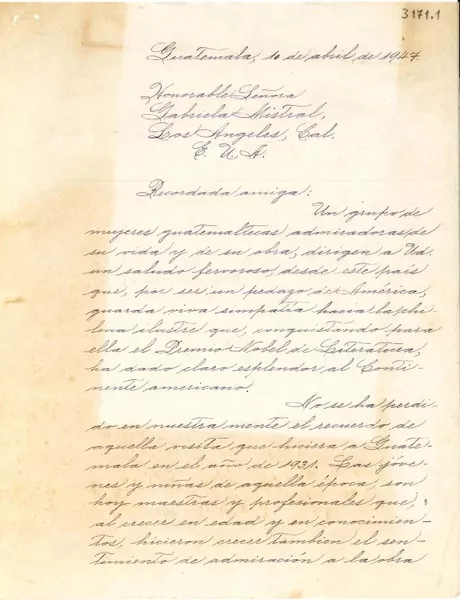 3171.1
Guatemala, 10 de abril de 1947.
Honorable Señora
Gabriela Mistral,
Los Angeles, Cal.
E. U. A.
Recordada amiga:
Un grupo de
mujeres guatemaltecas admiradoras de
su vida y de su obra, dirigen a Ud.
un saludo fervoroso, desde este país
que, por ser un pedazo de América,
guarda viva simpatía hacia la chi-
lena ilustre que, conquistando para
ella el Premio Nobel de Literatura,
ha dado claro esplendor al Conti-
nente americano.
No se ha perdi-
do en nuestra mente el recuerdo de
aquella visita que hiciera a Guate-
mala en el año de 1931. Las jóve-
nes y niñas de aquella época, son
hoy maestras y profesionales que,
al crecer en edad y en conocimien-
tos, hicieron crecer tambien el sen-
timiento de admiración a la obra